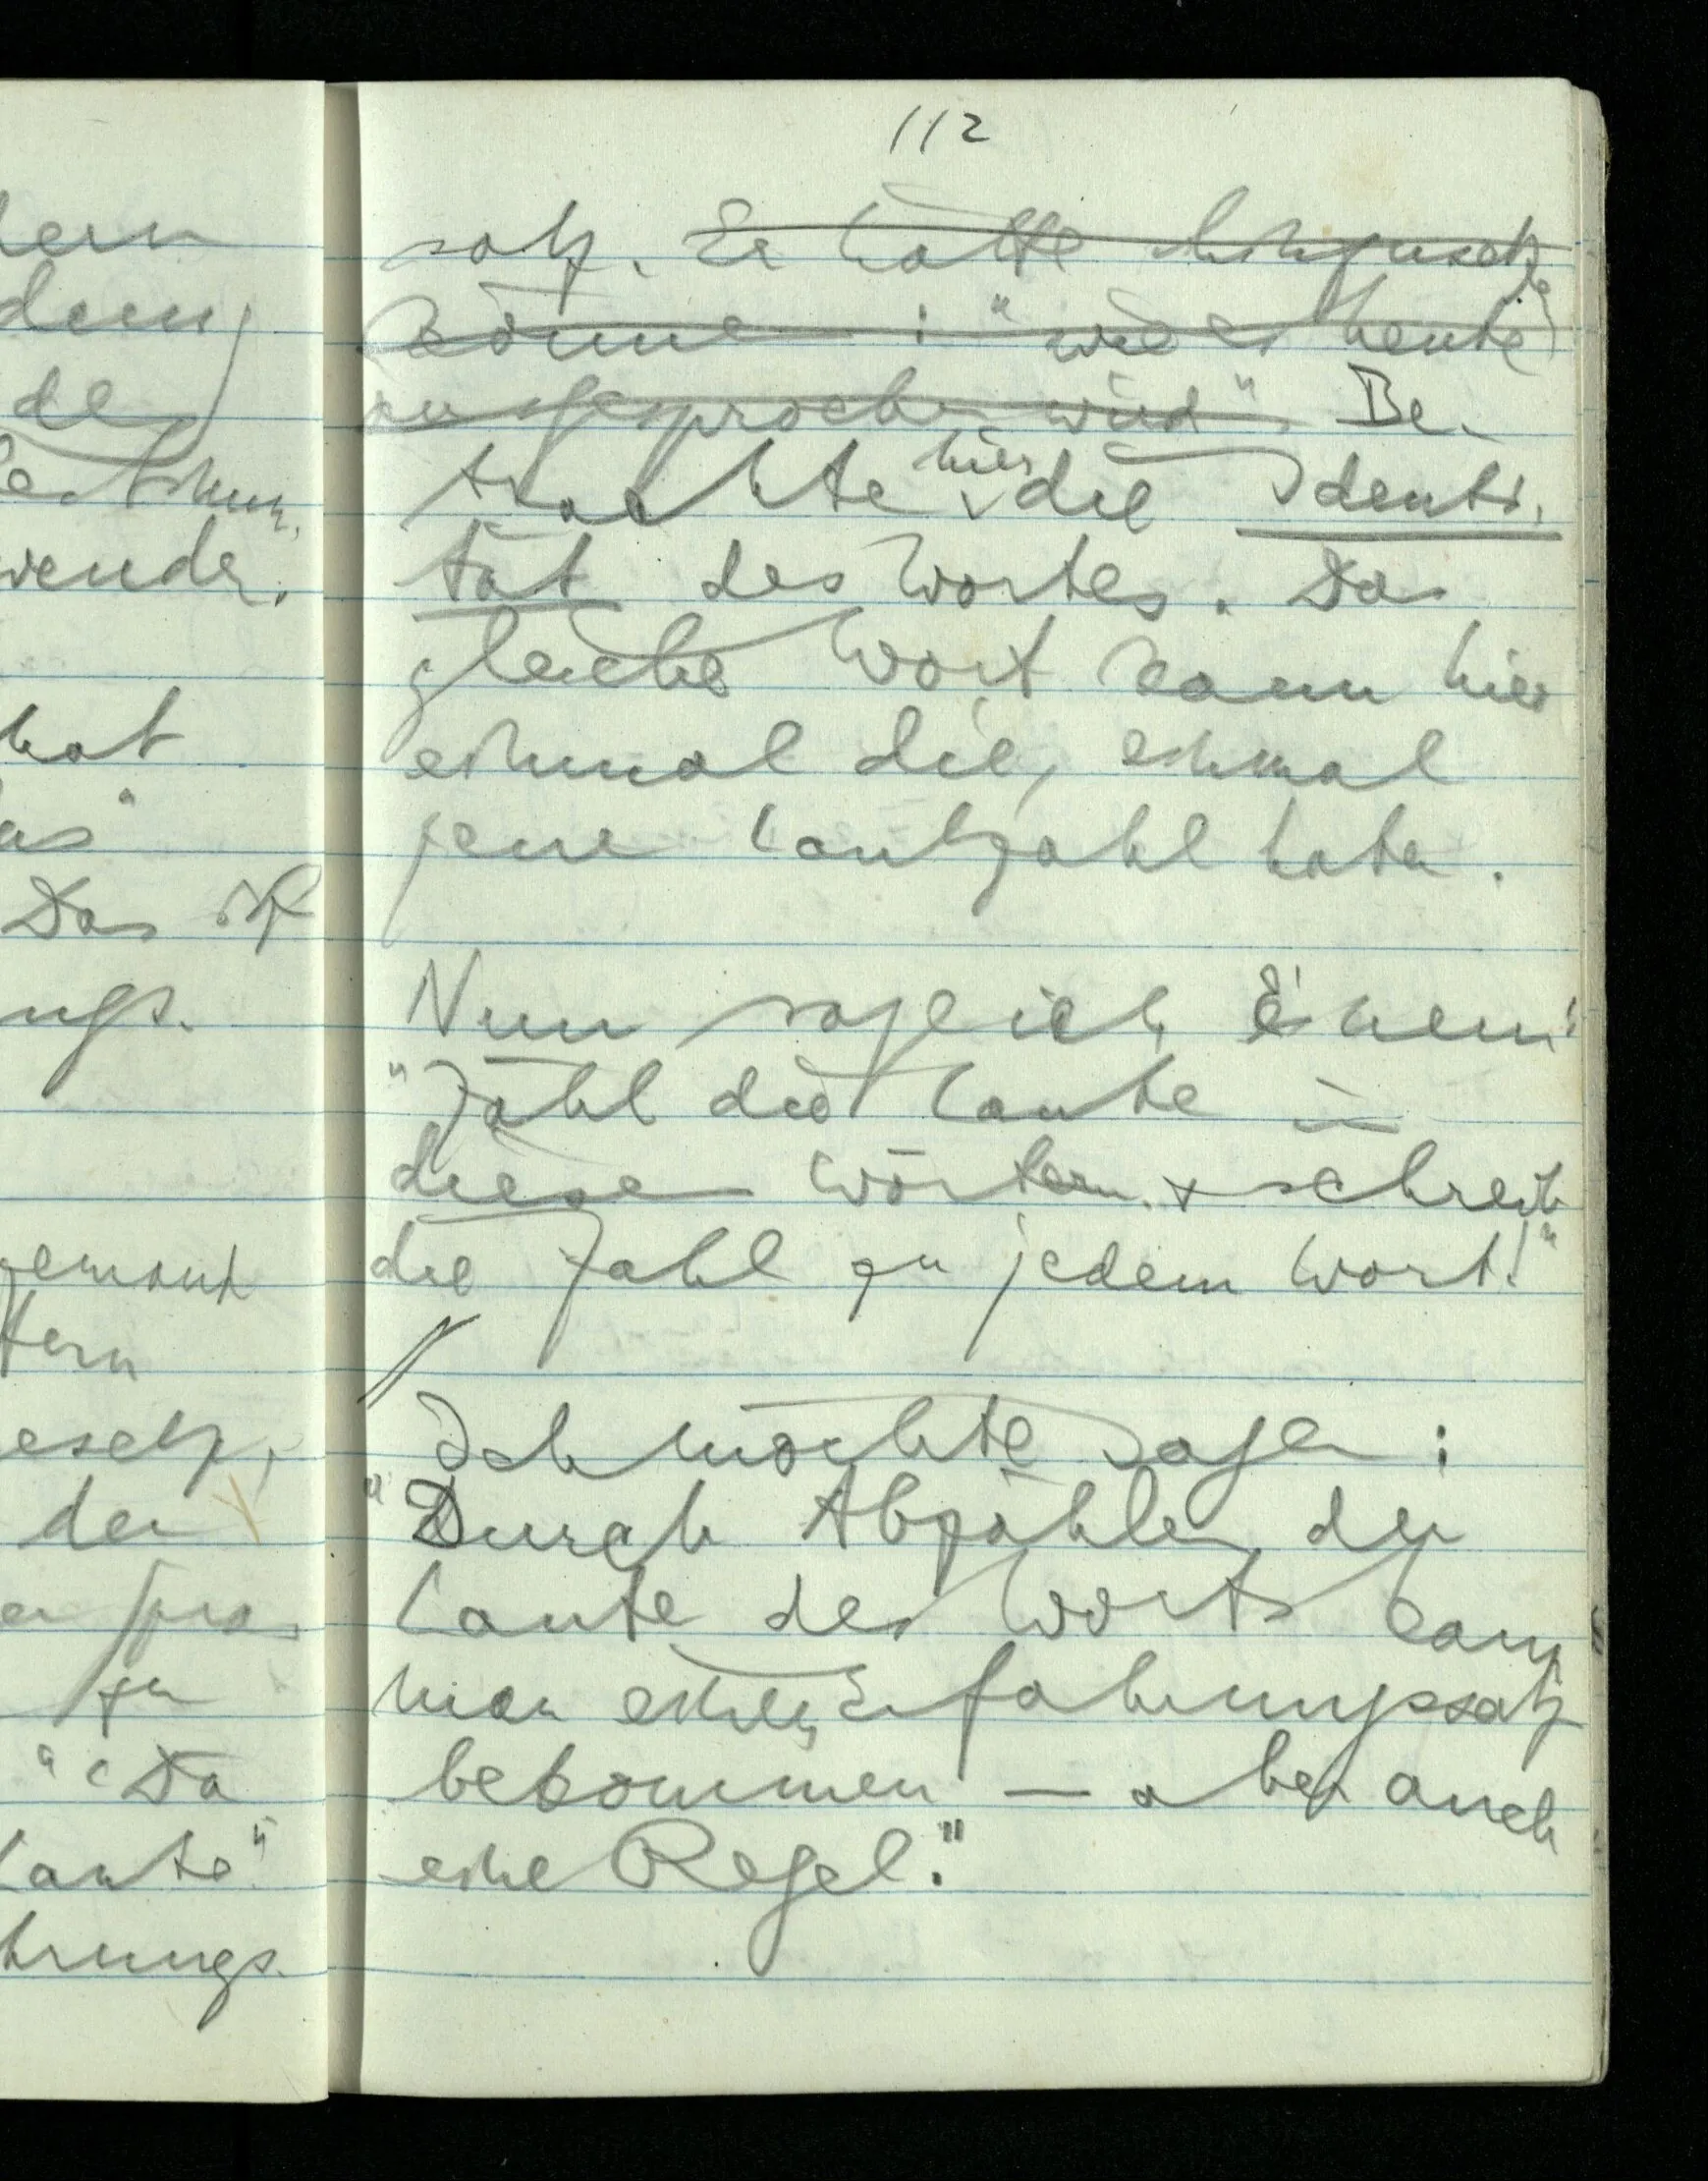 112
satz. Er hätte hinzusetzen
können: "wie es heute
ausgesprochen wird". Be-
trachte hier die Identi-
tät des Wortes. Das
gleiche Wort kann hier
einmal die, einmal
jene Lautzahl haben.
Nun sage ich Einem:
"Zähl die Laute in
diesen Wörtern & schreib
die Zahl zu jedem Wort!"
//
Ich möchte sagen:
"Durch Abzählen der
Laute des Worts kann
man einen Erfahrungssatz
bekommen — aber auch
eine Regel."
dern
den
wenden.
hat
das"
Das ist
ungs-
jemand
tern
esetz,
der
zu
" Da
Laute"
hrungs-